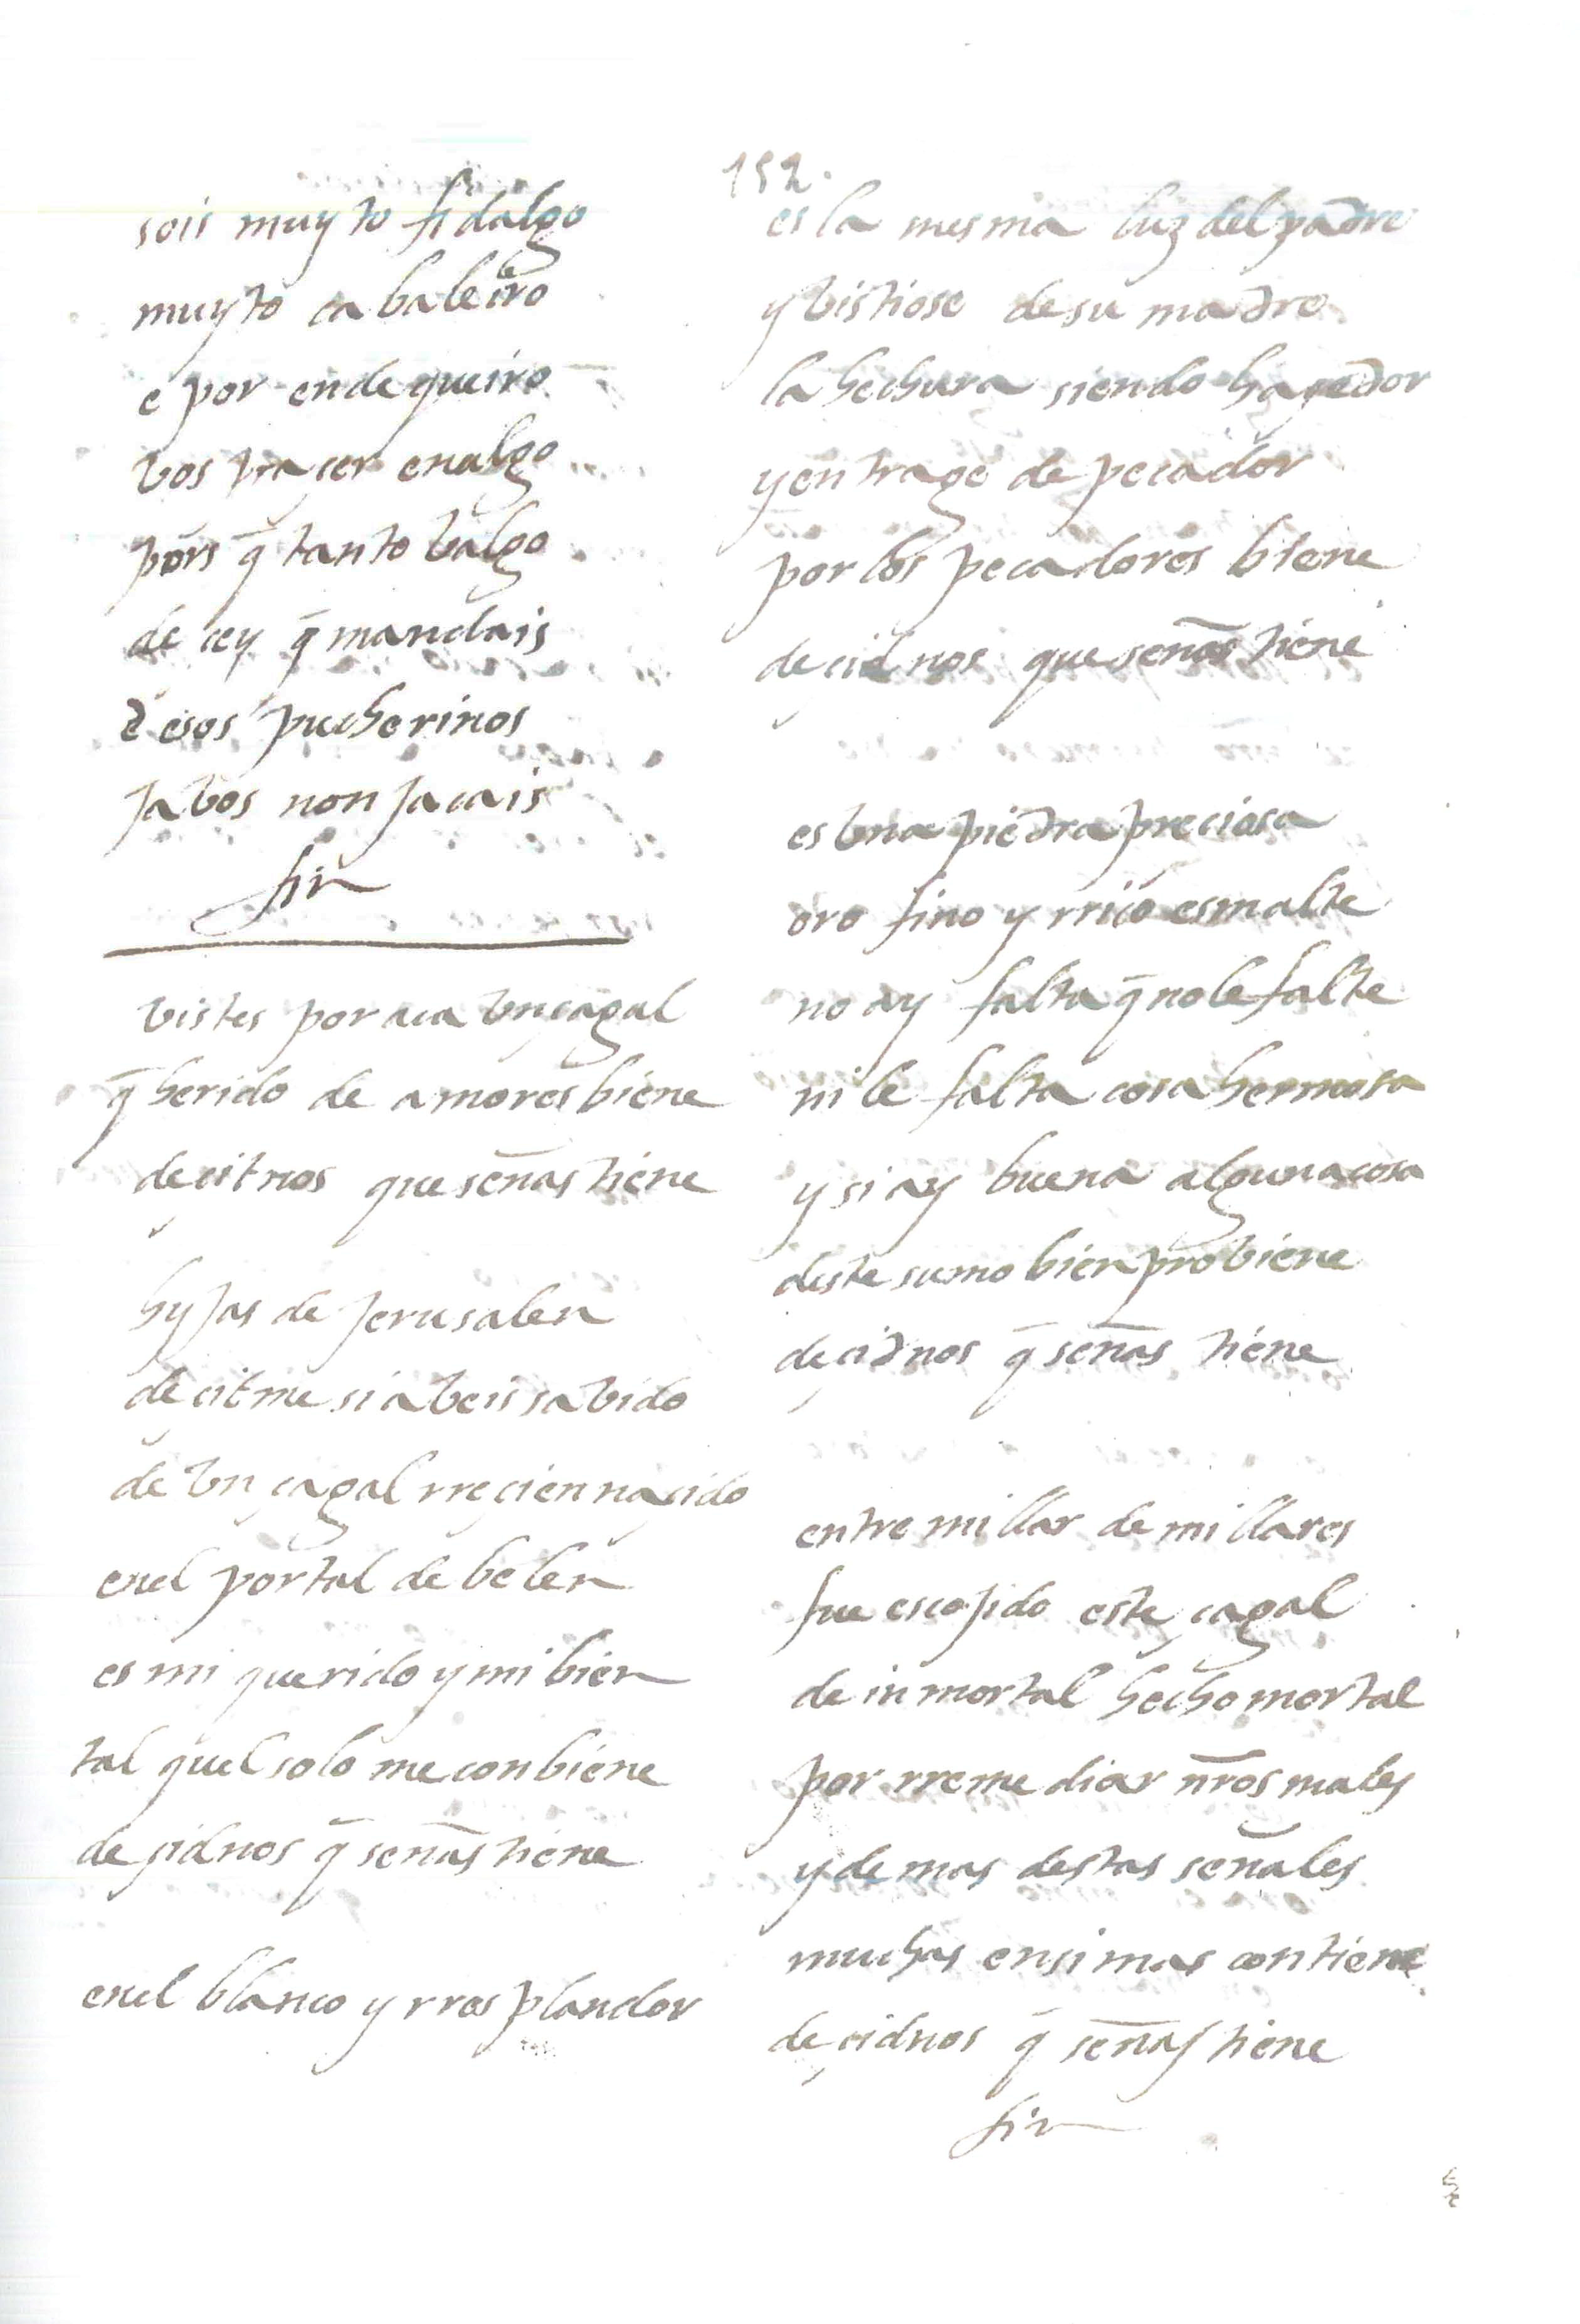 152.
sois muyto fidalgo
muyto cabaleiro
e por ende queiro
vos traçer en algo
pois q̄ tanto balgo
de ley q̄ mandais
d esos pucherinos
ja bos non façais
fin
bistes por aca un çagal
q̄ herido de amores biene
decitnos que señas tiene
hyjas de jerusalen
decitme si abeis sabido
de un çagal rreçien naçido
en el portal de belen
es mi querido y mi bien
tal quel solo me conbiene
deçidnos q̄ señas tiene
en el blanco y rresplandor
es la mesma luz del padre
y bistiose de su madre
la hechura siendo haçedor
y en trage de pecador
por los pecadores biene
deçidnos que señas tiene
es una piedra preciosa
oro fino y rrico esmalte
no ay falta q̄ no le falte
ni le falta cosa hermosa
y si ay buena alguna cosa
deste sumo bien probiene
deçidnos q̄ señas tiene
entre millar de millares
fue escojido este çagal
de inmortal hecho mortal
por rremediar nr̄os males
y demas destas señales
muchas en si mas contiene
deçidnos q̄ señas tiene
fin